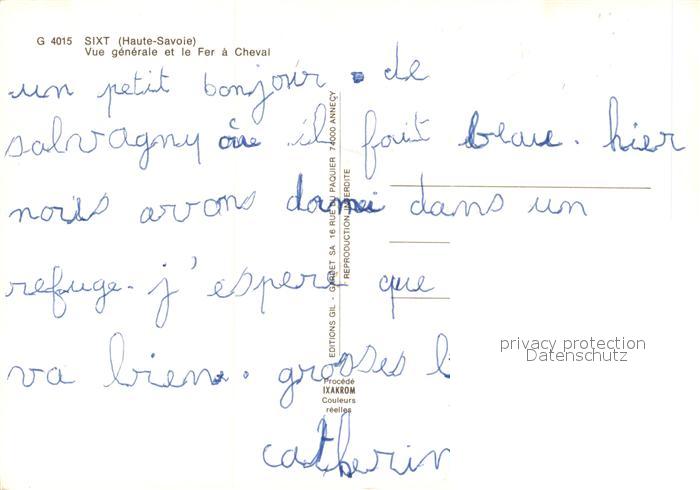 G 4015 SIXT (Haute-Savoie)
Vue générale et le Fer à Cheval
un petit bonjour de
salvagny où il fait beau. hier
nous avons dormi dans un
refuge. j'espère que
va bien. grosses b
catherin
EDITIONS GIL - GARDET SA 16 RUE DU PAQUIER 74000 ANNECY
REPRODUCTION INTERDITE
Procédé
IXAKROM
Couleurs
réelles
privacy protection
Datenschutz